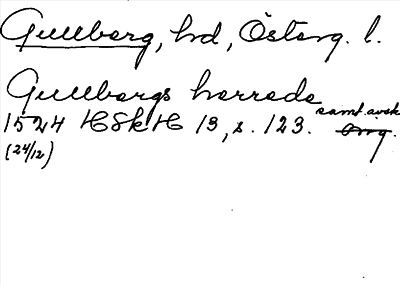 Gullberg, hd, Österg. l.
Gullbergs herrade
1524 HSkH 13, s. 123. samt. avsk. Orig.
(24/12)